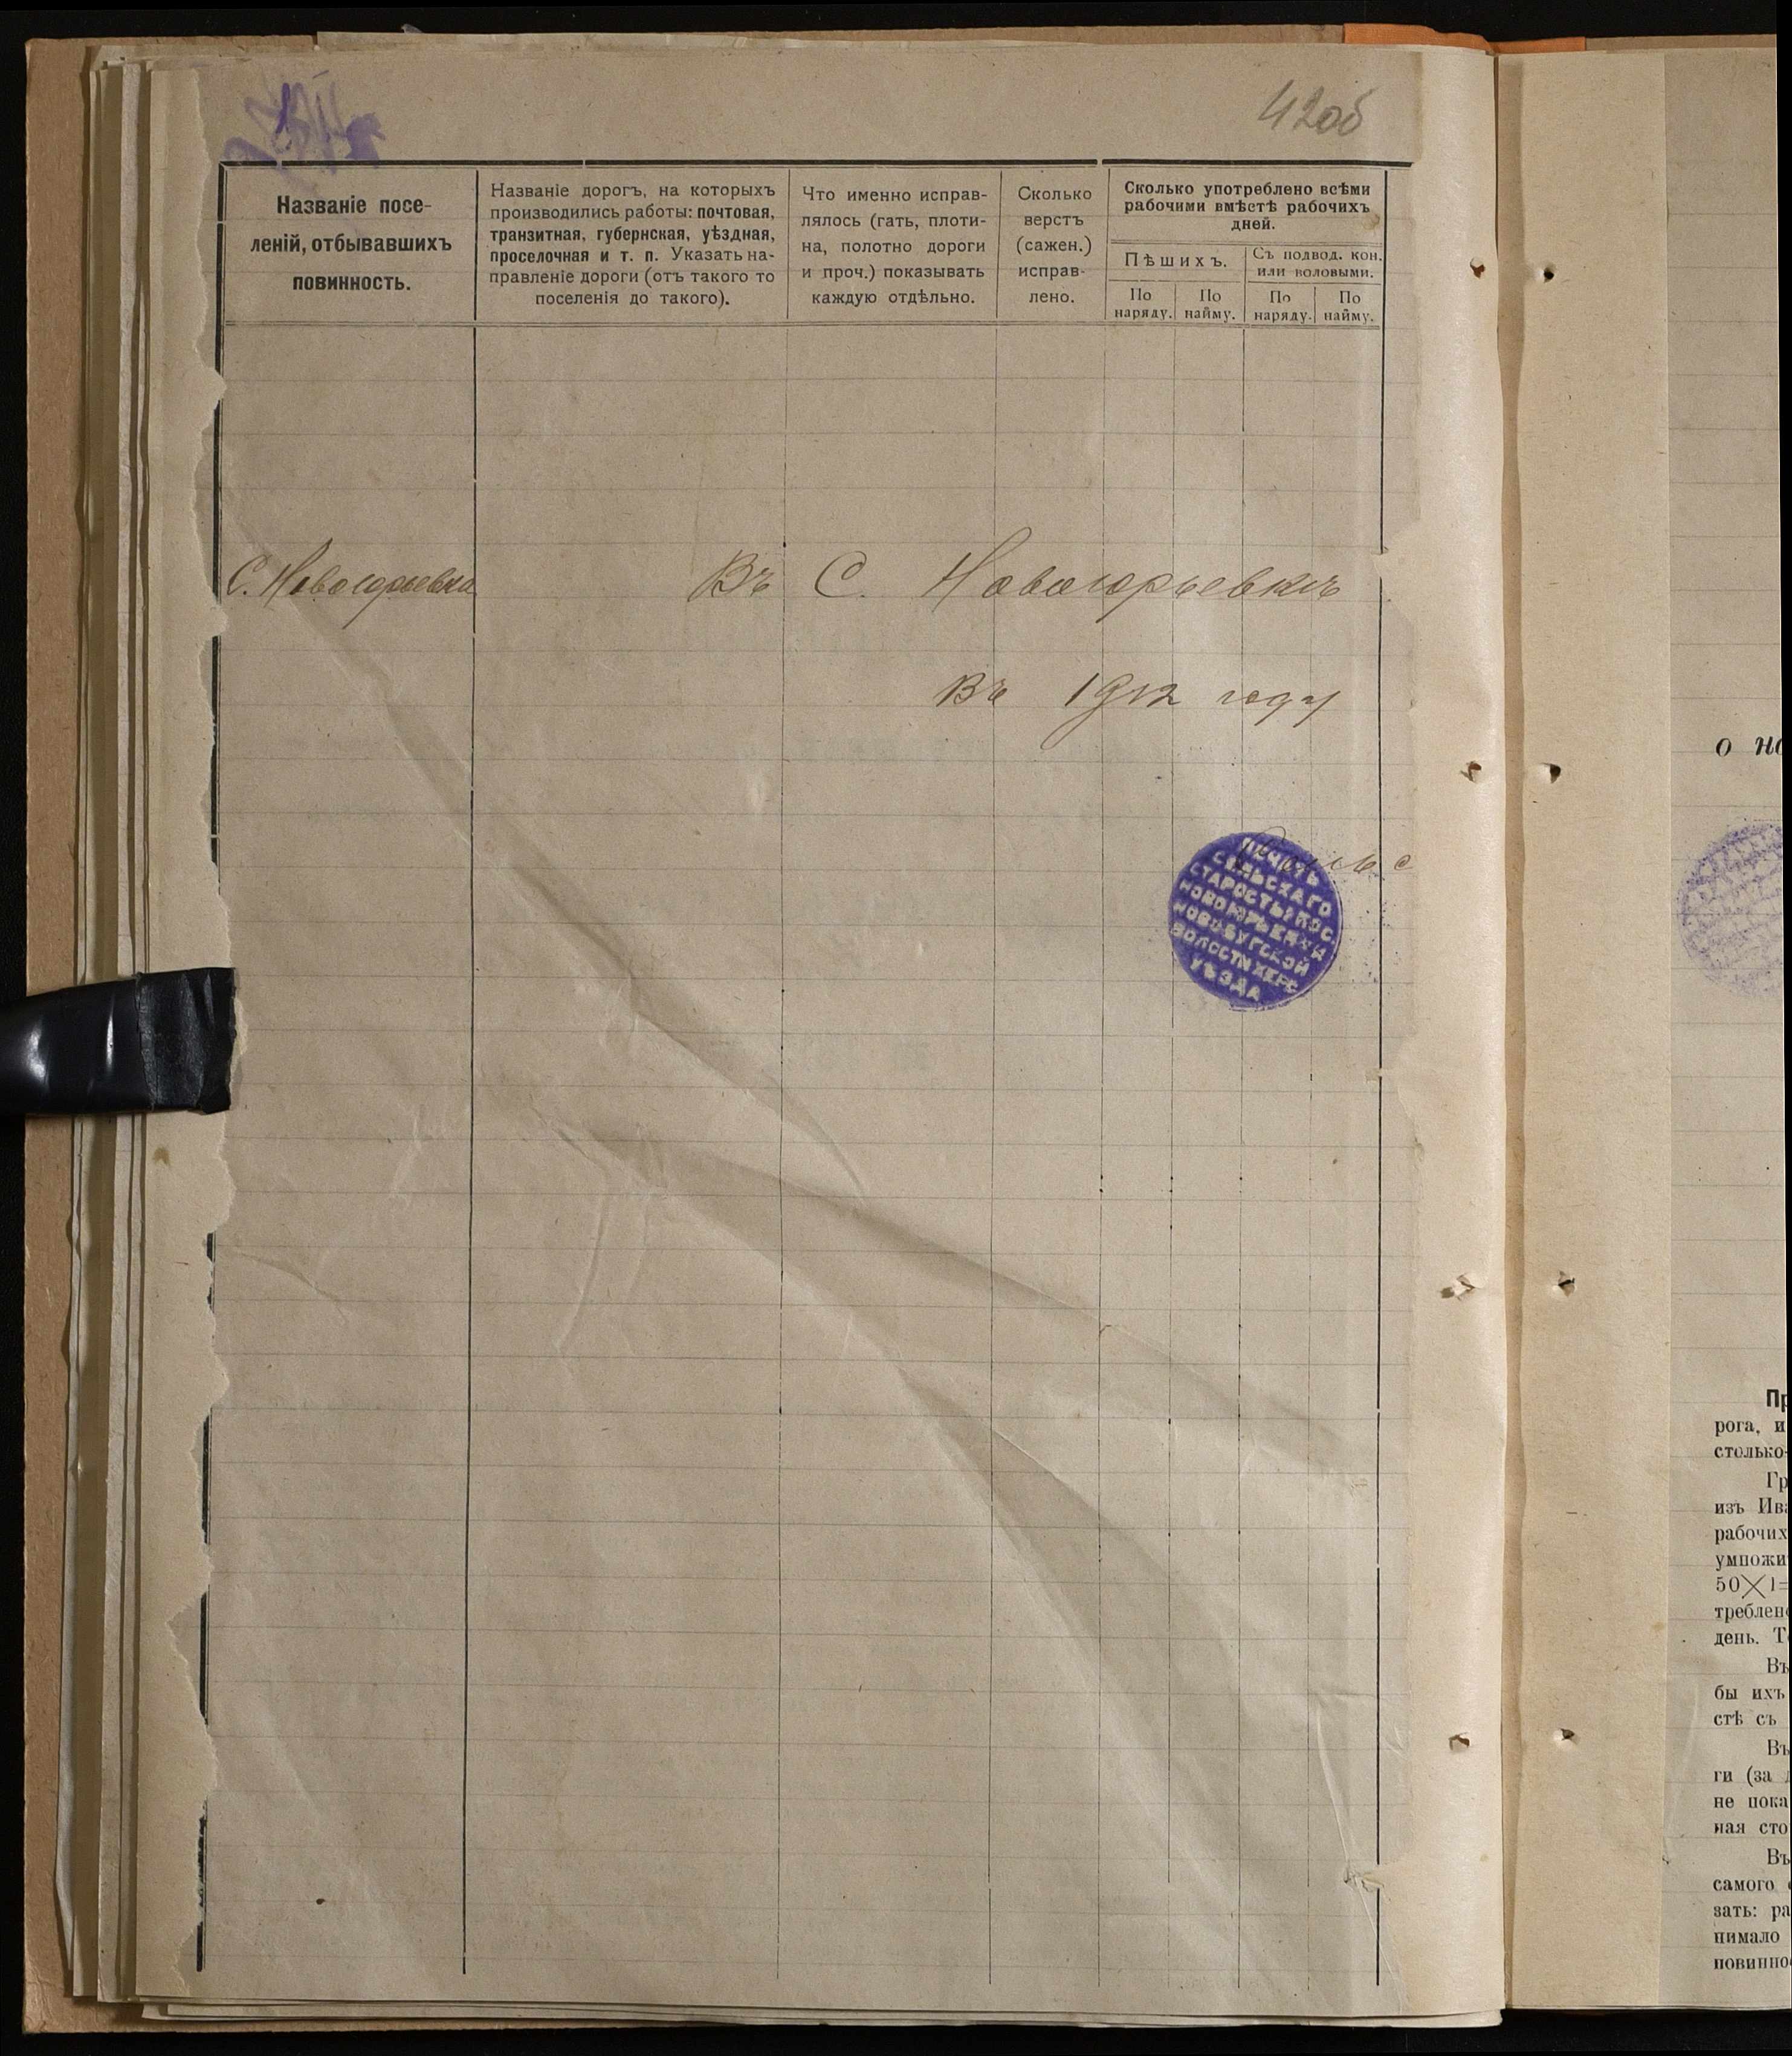 42об
Названіе посе-
леній, отбывавшихъ
повинность.
Названіе дорогъ, на которыхъ
производились работы: почтовая,
транзитная, губернская, уѣздная,
проселочная и т. п. Указать на-
правленіе дороги (отъ такого то
поселенія до такого).
Что именно исправ-
лялось (гать, плоти-
на, полотно дороги
и проч.) показывать
каждую отдѣльно.
Сколько
верстъ
(сажен.)
исправ-
лено.
Сколько употреблено всѣми
рабочими вмѣстѣ рабочихъ
дней.
Пѣшихъ.
Съ подвод. кон.
или воловыми.
По
наряду.
По
найму.
По
наряду.
По
найму.
С. Новоюрьевка
Въ С. Новоюрьевкѣ
Въ 1912 году
ПЕЧАТЬ
СЕЛЬСКАГО
СТАРОСТЫ ПОС.
НОВОЮРЬЕВКИ
НОВОБУГСКОЙ
ВОЛОСТИ ХЕРС
УѢЗДА
о
рога, и
столько-
изъ
рабочих
50×1=
день.
Въ
бы ихъ
стѣ съ
Въ
ги (за
не пока
ная сто
Въ
самого
зать: ра
нимало
повинно